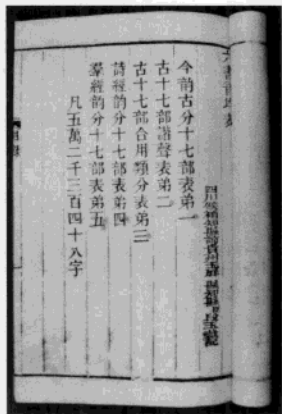 六書音均表
今韵古分十七部表第一
古十七部諧聲表弟二
古十七部合用類分表弟三
詩經韵分十七部表弟四
羣經韵分十七部表弟五
凡五萬二千三百四十八字